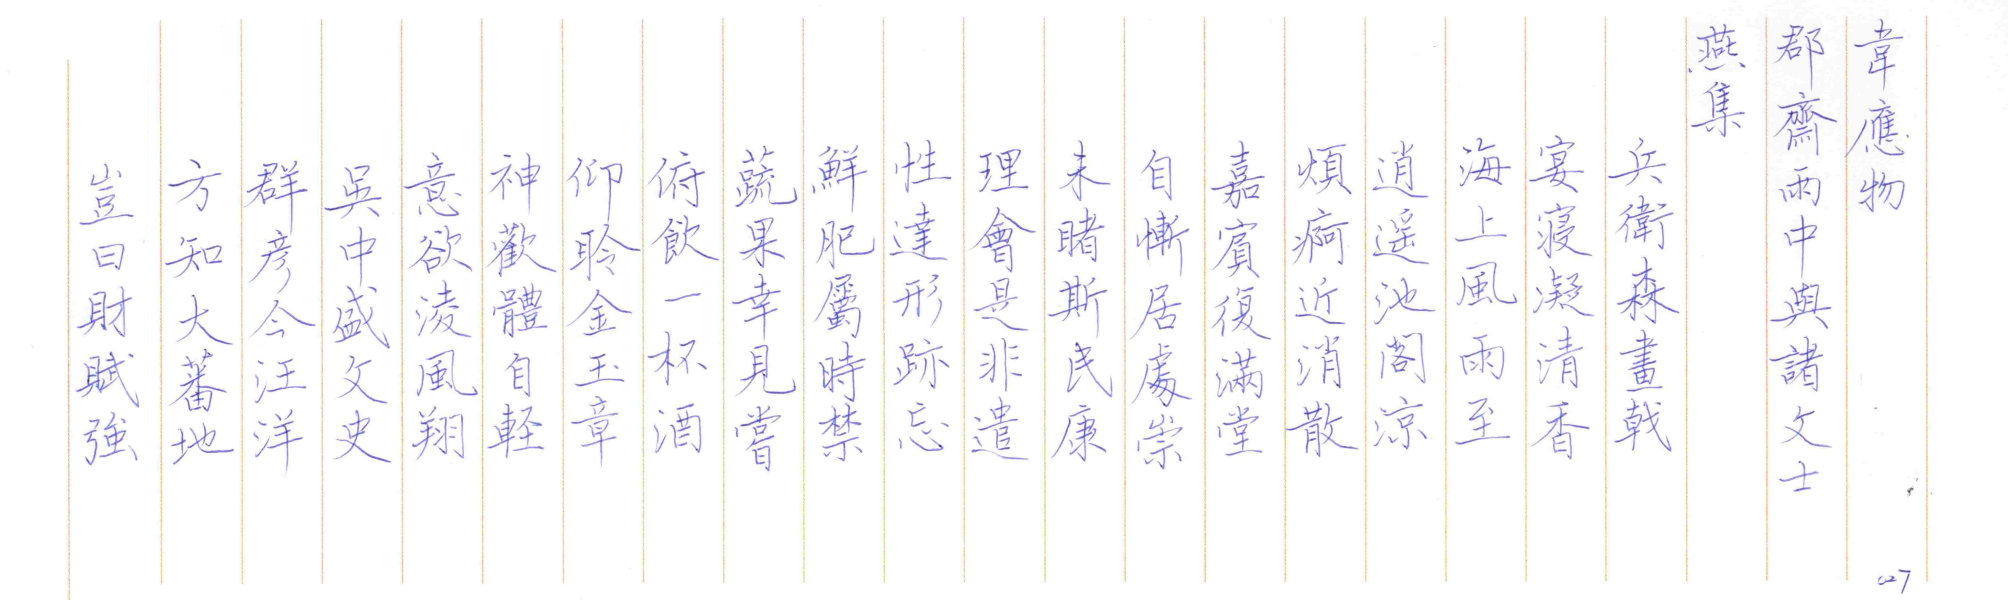 韋應物
郡齋雨中與諸文士
燕集
兵衛森畫戟
宴寢凝清香
海上風雨至
逍遥池閣涼
煩痾近消散
嘉賓復滿堂
自慚居處崇
未睹斯民康
理會是非遣
性達形跡忘
鮮肥屬時禁
蔬果幸見嘗
俯飲一杯酒
仰聆金玉章
神歡體自軽
意欲淩風翔
吳中盛文史
群彥今汪洋
方知大蕃地
豈曰財賦強
027